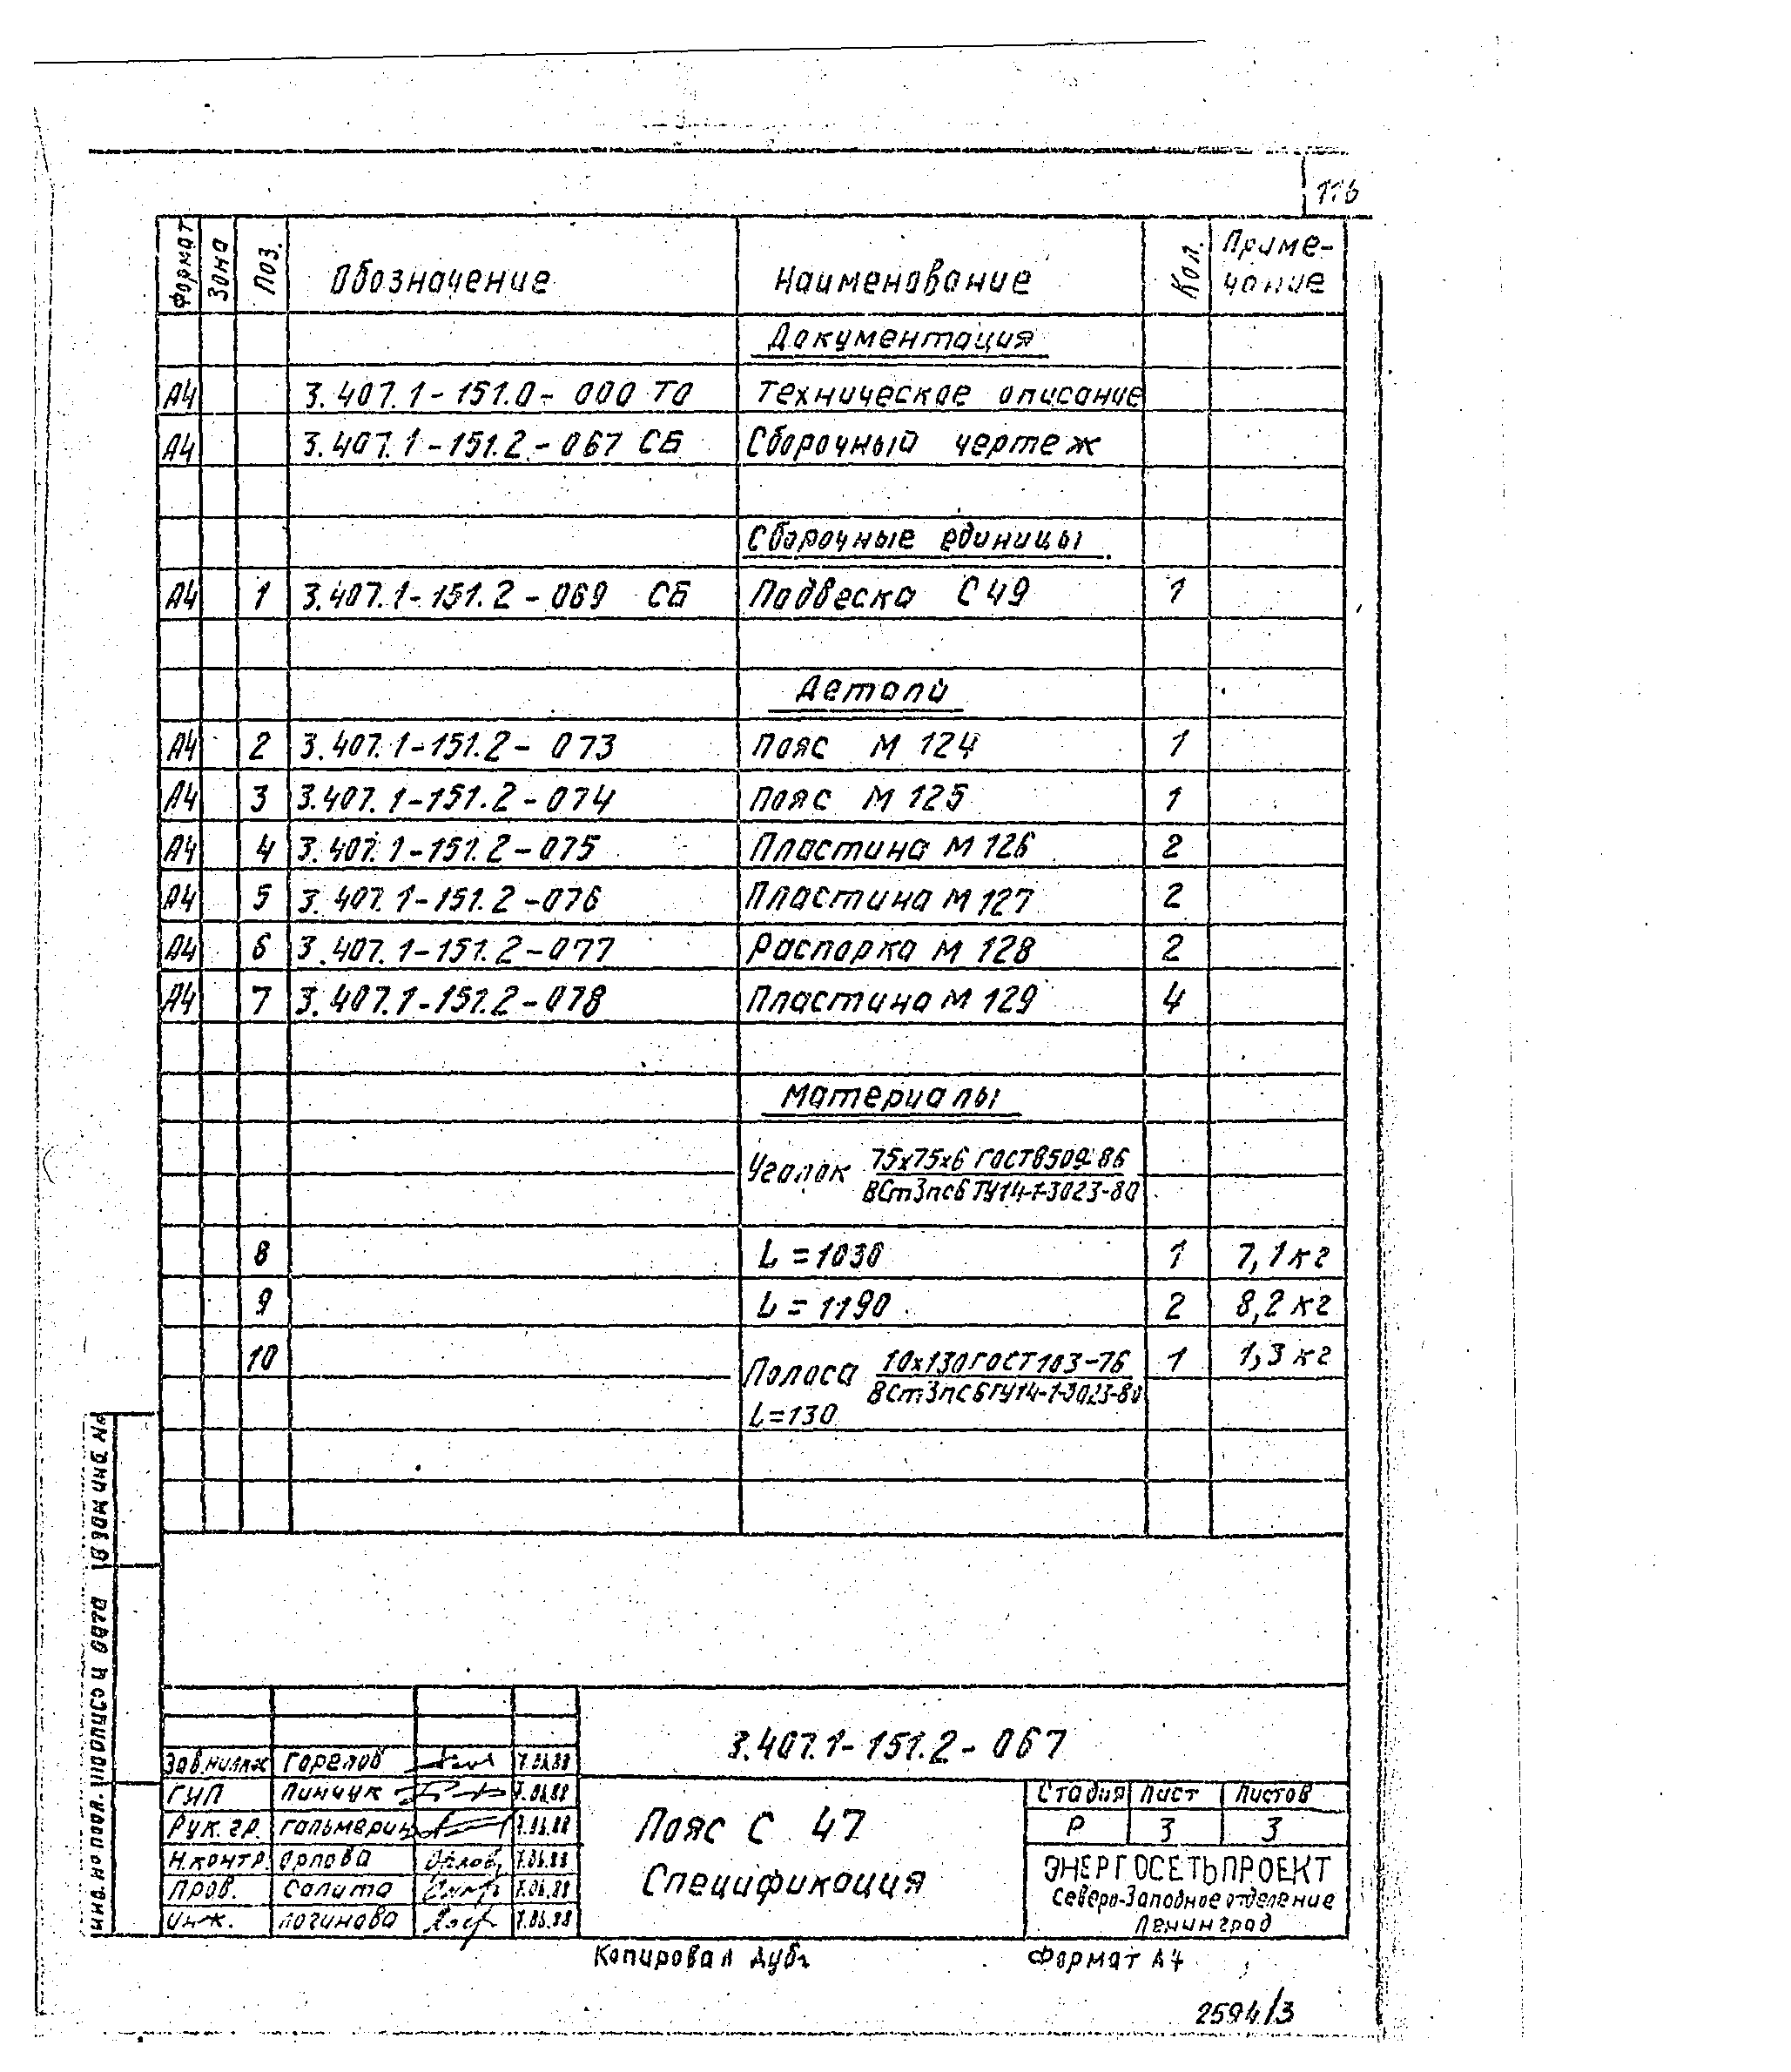 116
Формат Зона Поз. Обозначение Наименование Кол. Приме-
чание
Документация
А4 3.407.1-151.0-000 ТО Техническое описание
А4 3.407.1-151.2-067 СБ Сборочный чертеж
Сборочные единицы
А4 1 3.407.1-151.2-069 СБ Подвеска С49 1
Детали
А4 2 3.407.1-151.2-073 Пояс М 124 1
А4 3 3.407.1-151.2-074 Пояс М 125 1
А4 4 3.407.1-151.2-075 Пластина М 126 2
А4 5 3.407.1-151.2-076 Пластина М 127 2
А4 6 3.407.1-151.2-077 Распорка М 128 2
А4 7 3.407.1-151.2-078 Пластина М 129 4
Материалы
Уголок 75х75х6 ГОСТ 8509-86
ВСт3пс6 ТУ14-1-3023-80
8 L=1030 1 7,1кг
9 L=1190 2 8,2кг
10 Полоса 10х130 ГОСТ 103-76 1 1,3кг
ВСт3пс6 ТУ14-1-3023-80
L=130
Взам инв №
Подпись и дата
Инв. № подл.
3.407.1-151.2-067
Зав.нилкж Горелов 7.06.88
ГИП Пинчук 7.06.88
Рук.гр. Гальмерин 7.06.88
Н.контр. Орлова 7.06.88
Пров. Салита 7.06.88
Инж. Логинова 7.06.88
Пояс С 47
Спецификация
Стадия Лист Листов
Р 3 3
ЭНЕРГОСЕТЬПРОЕКТ
Северо-Западное отделение
Ленинград
Копировал Формат А4
2594/3